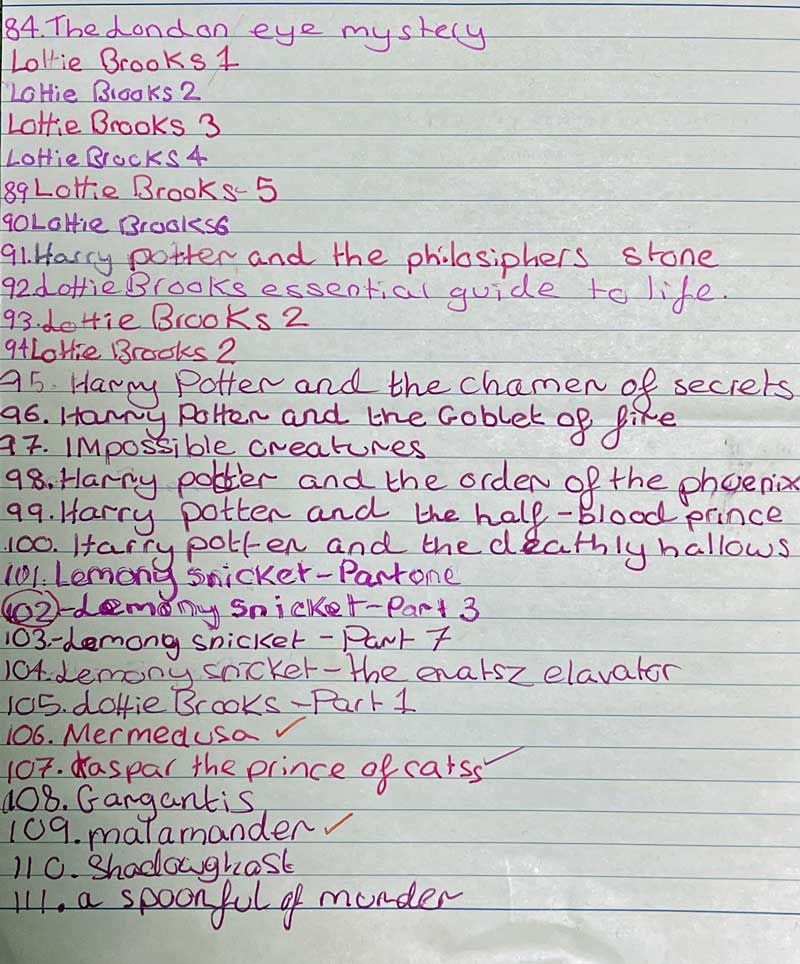 84. The London eye mystery
Lottie Brooks 1
Lottie Brooks 2
Lottie Brooks 3
Lottie Brooks 4
89 Lottie Brooks - 5
90 Lottie Brooks 6
91. Harry potter and the philosiphers stone
92. Lottie Brooks essential guide to life.
93. Lottie Brooks 2
94 Lottie Brooks 2
95. Harry Potter and the chamen of secrets
96. Harry Potter and the Goblet of fire
97. IMpossible creatures
98. Harry potter and the order of the phoenix
99. Harry Potter and the half-blood prince
100. Harry potter and the deathly hallows
101. Lemony snicket - Part one
102 - Lemony snicket - Part 3
103. - Lemony snicket - Part 7
104. Lemony snicket - the enatsz elavator
105. Lottie Brooks - Part 1
106. Mermedusa ✓
107. Kaspar the prince of catss ✓
108. Gargantis
109. malamander ✓
110. Shadowghast
111. a spoonful of murder